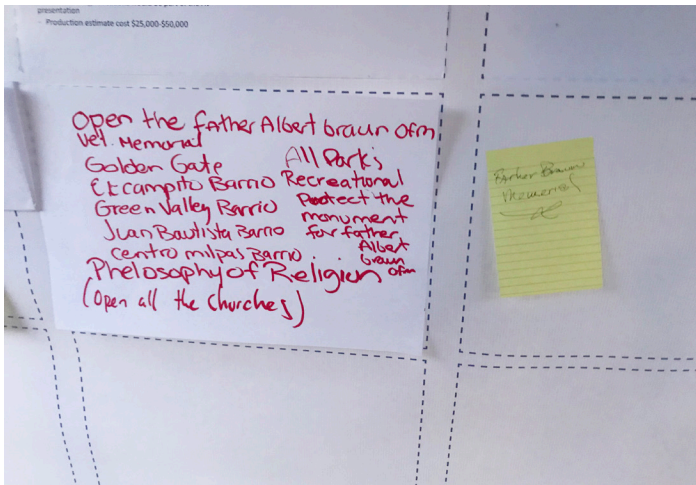 presentation
- Production estimate cost $25,000-$50,000
Open the father Albert braun ofm
Vet. Memorial
Golden Gate
El campito Barrio
Green Valley Barrio
Juan Bautista Barrio
centro milpas Barrio . .
All Park's
Recreational
Protect the
monument
for father
Albert
braun
ofm
Phelosophy of Religion
(Open all the churches)
Father Braun
Memorial